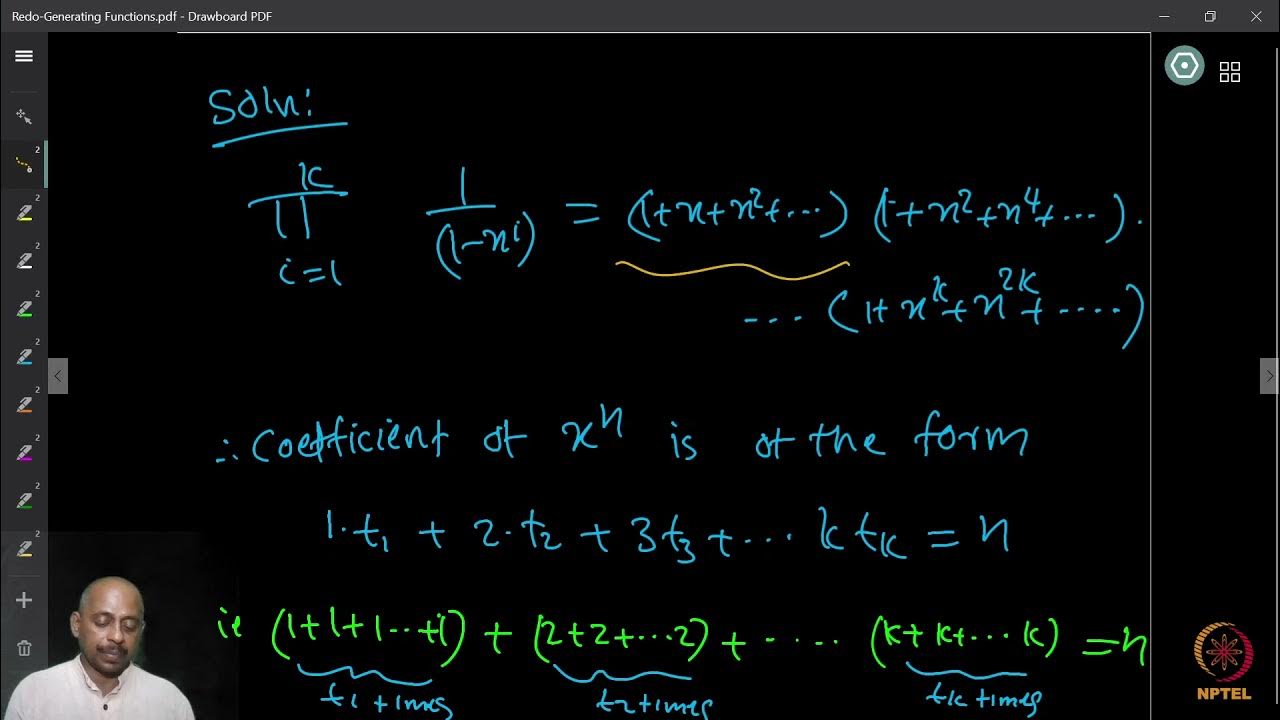 Redo-Generating Functions.pdf - Drawboard PDF
Soln:
k
∏ 1/(1-x^i) = (1+x+x²+...) (1+x²+x⁴+...).
i=1
... (1+x^k+x^2k+....)
∴ Coefficient of x^n is of the form
1·t₁ + 2·t₂ + 3t₃ + ... k tk = n
ie (1+1+1...+1) + (2+2+...2) + .... (k+k+...k) = n
t₁ times t₂ times tk times
2
2
2
2
2
2
2
2
2
NPTEL